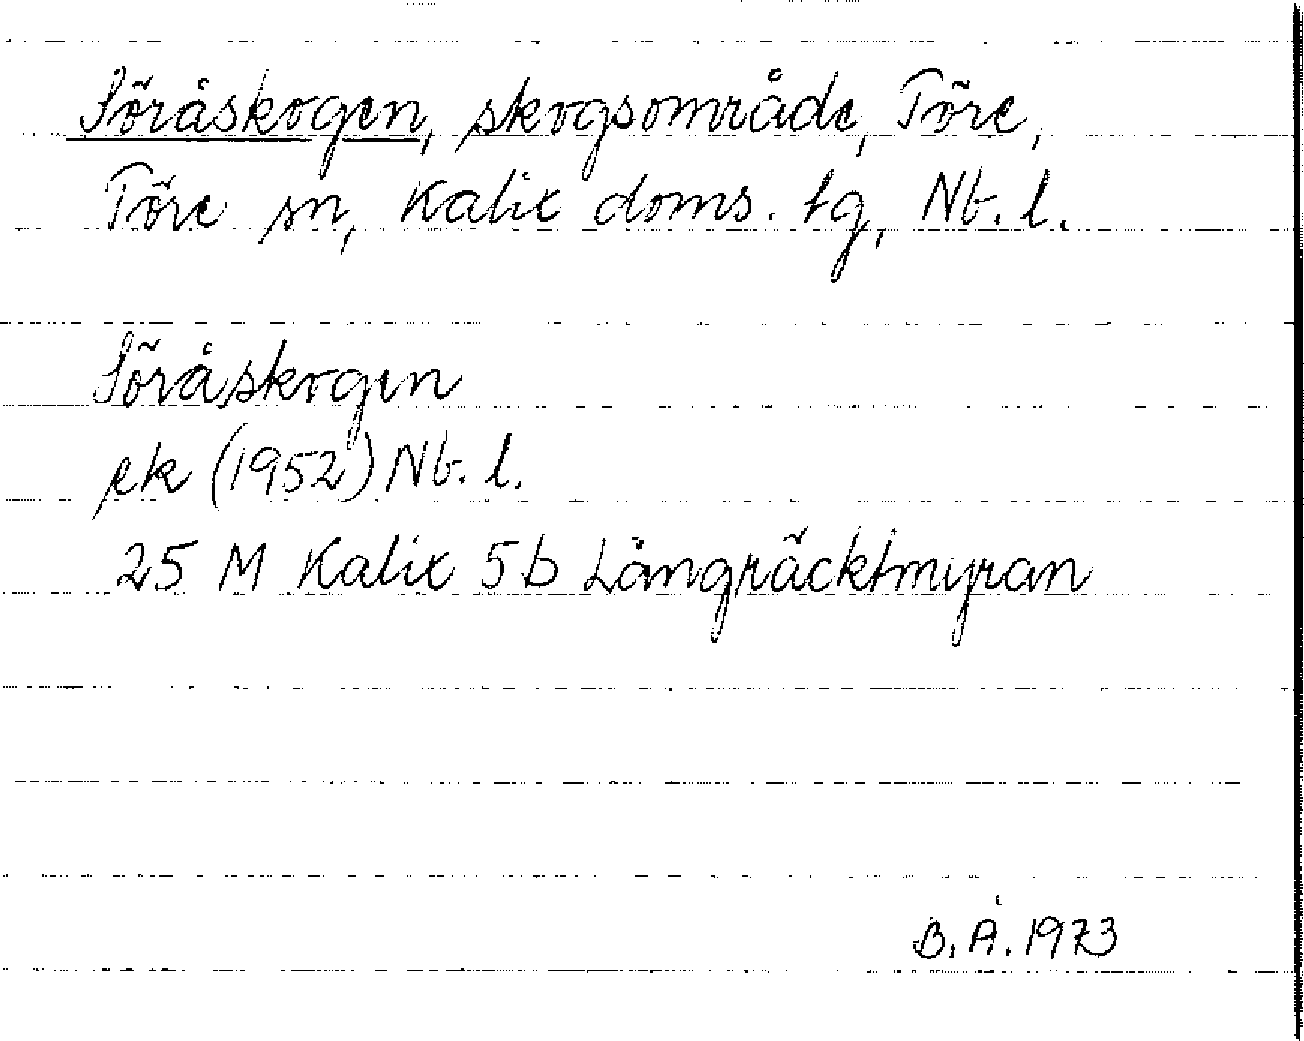 Söråskogen, skogsområde, Töre,
Töre sn, Kalix doms. tg, Nb. l.
Söråskogen
ek (1952) Nb. l.
25 M Kalix 5b Långräcktmyran
B. Å. 1973